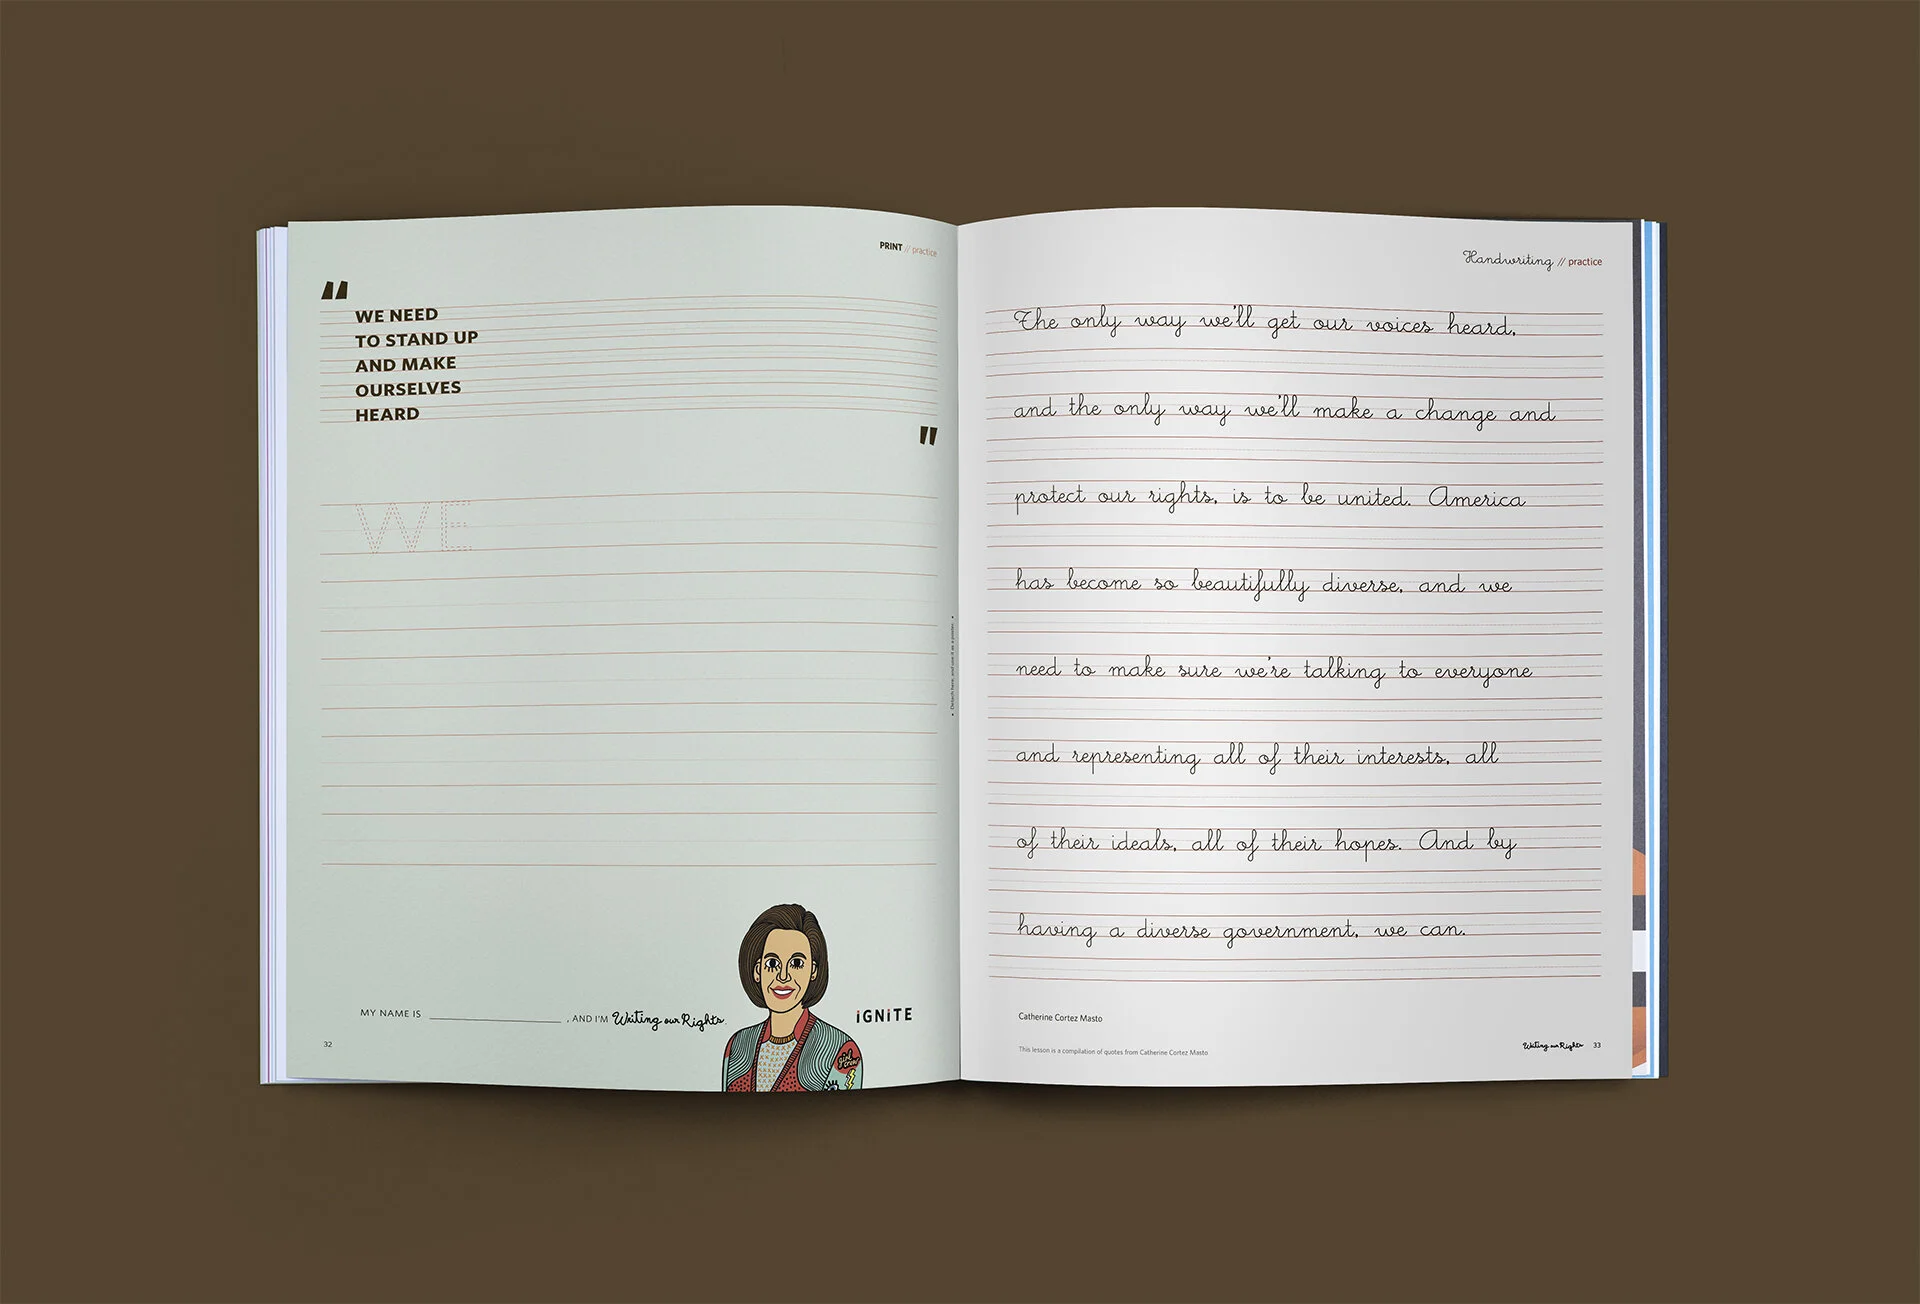 PRINT // practice
"
WE NEED
TO STAND UP
AND MAKE
OURSELVES
HEARD
"
WE
• Detach here, and use it as a poster. •
MY NAME IS ____________________ , AND I'M Writing our Rights.
girl crew
IGNITE
32
Handwriting // practice
The only way we'll get our voices heard,
and the only way we'll make a change and
protect our rights, is to be united. America
has become so beautifully diverse, and we
need to make sure we're talking to everyone
and representing all of their interests, all
of their ideals, all of their hopes. And by
having a diverse government, we can.
Catherine Cortez Masto
This lesson is a compilation of quotes from Catherine Cortez Masto
Writing our Rights 33